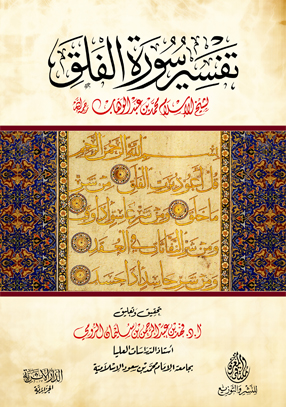 تفسير سورة الفلق
لشيخ الإسلام محمد بن عبد الوهاب رحمه الله
بسم الله الرحمن الرحيم
قل أعوذ برب الفلق من شر
ما خلق ومن شر غاسق إذا وقب
ومن شر النفاثات في العقد
ومن شر حاسد إذا حسد
تحقيق وتعليق
أ.د. فهد بن عبد الرحمن بن سليمان الرومي
أستاذ الدراسات العليا
بجامعة الإمام محمد بن سعود الإسلامية
الدار الأثرية
للنشر والتوزيع